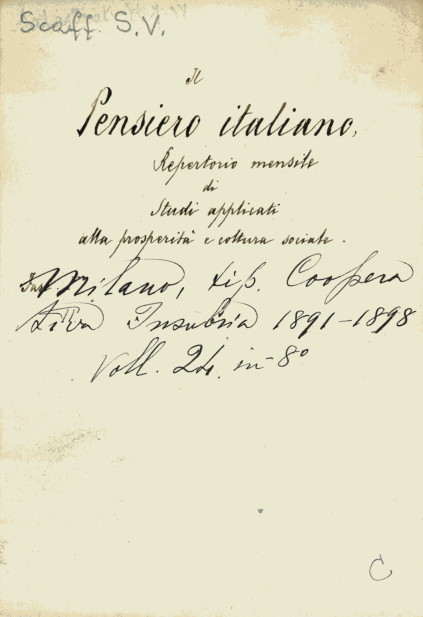 Scaff. S.V.
Il
Pensiero italiano,
Repertorio mensile
di
Studi applicati
alla prosperità e coltura sociale.
Milano, tip. Coopera
tiva Insubria 1891-1898
Voll. 24. in-8º
C